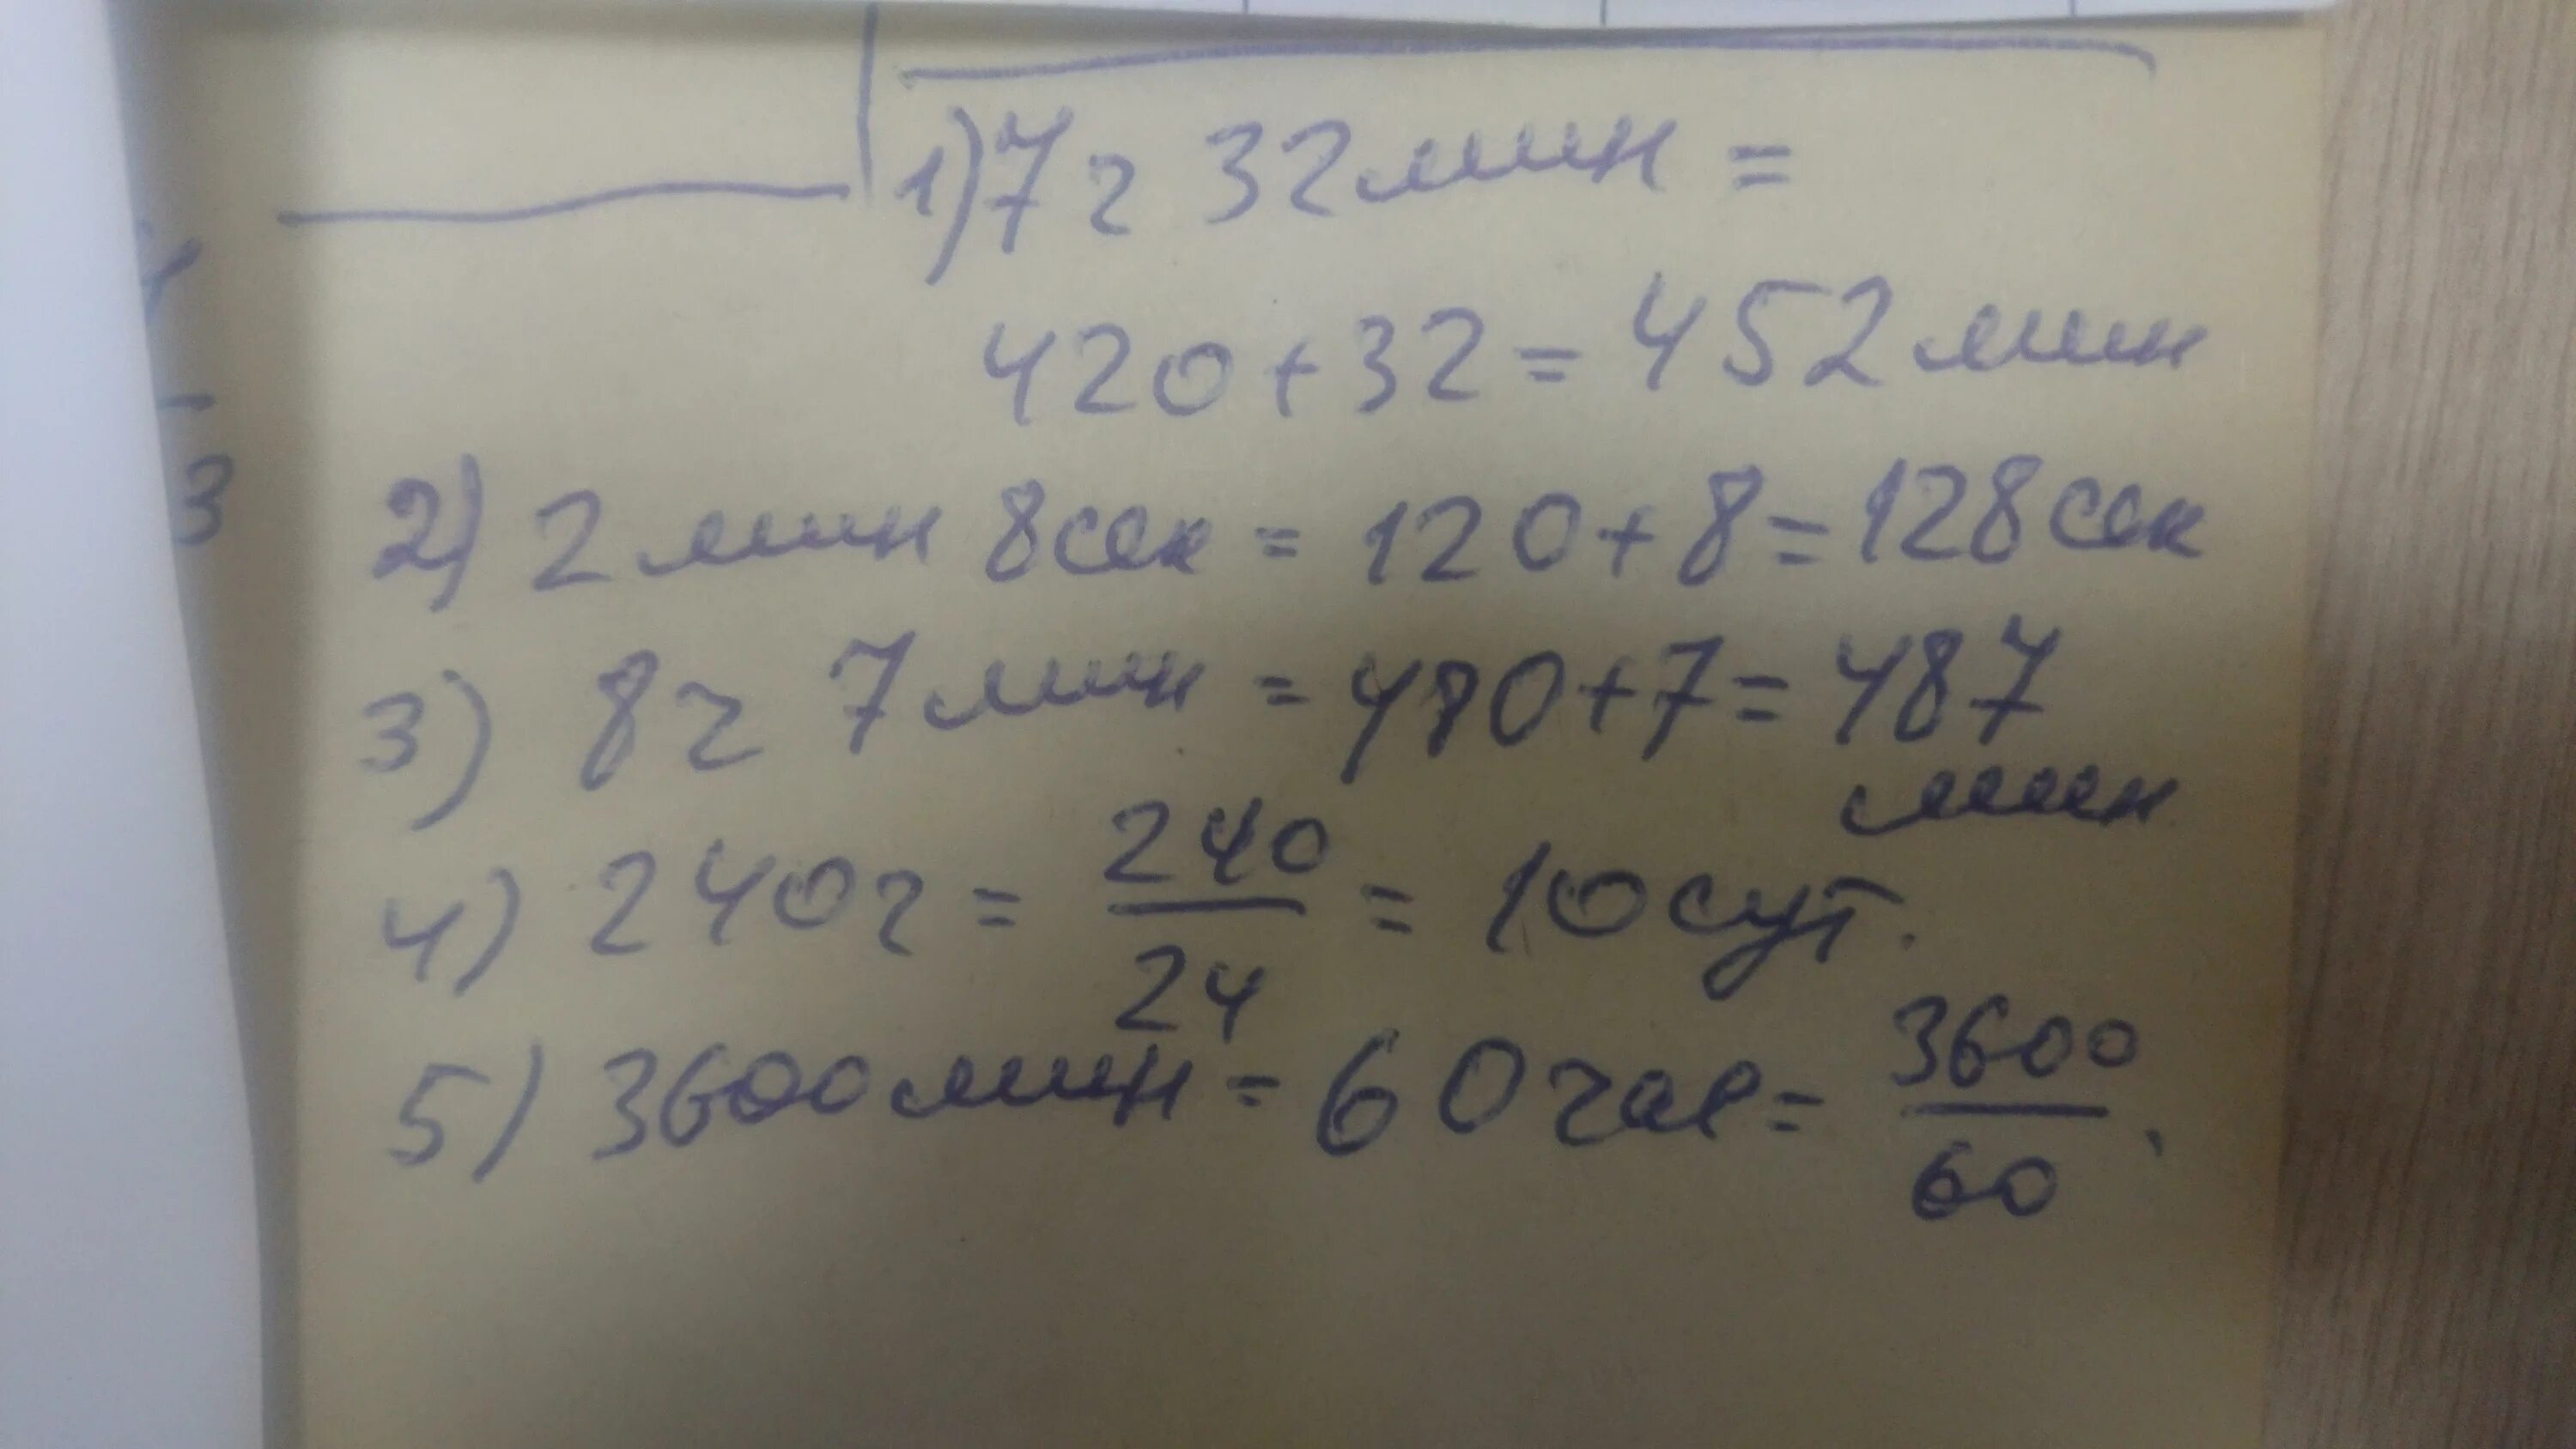 1) 7 ч 32 мин =
420 + 32 = 452 мин
2) 2 мин 8 сек = 120 + 8 = 128 сек
3) 8 ч 7 мин = 480 + 7 = 487
мин
4) 240 ч = 240/24 = 10 сут.
5) 3600 мин = 60 час = 3600/60.
3